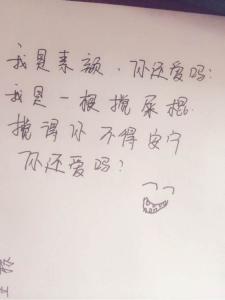 我是素颜,你还爱吗?
我是一根搅屎棍.
搅得你不得安宁
你还爱吗?